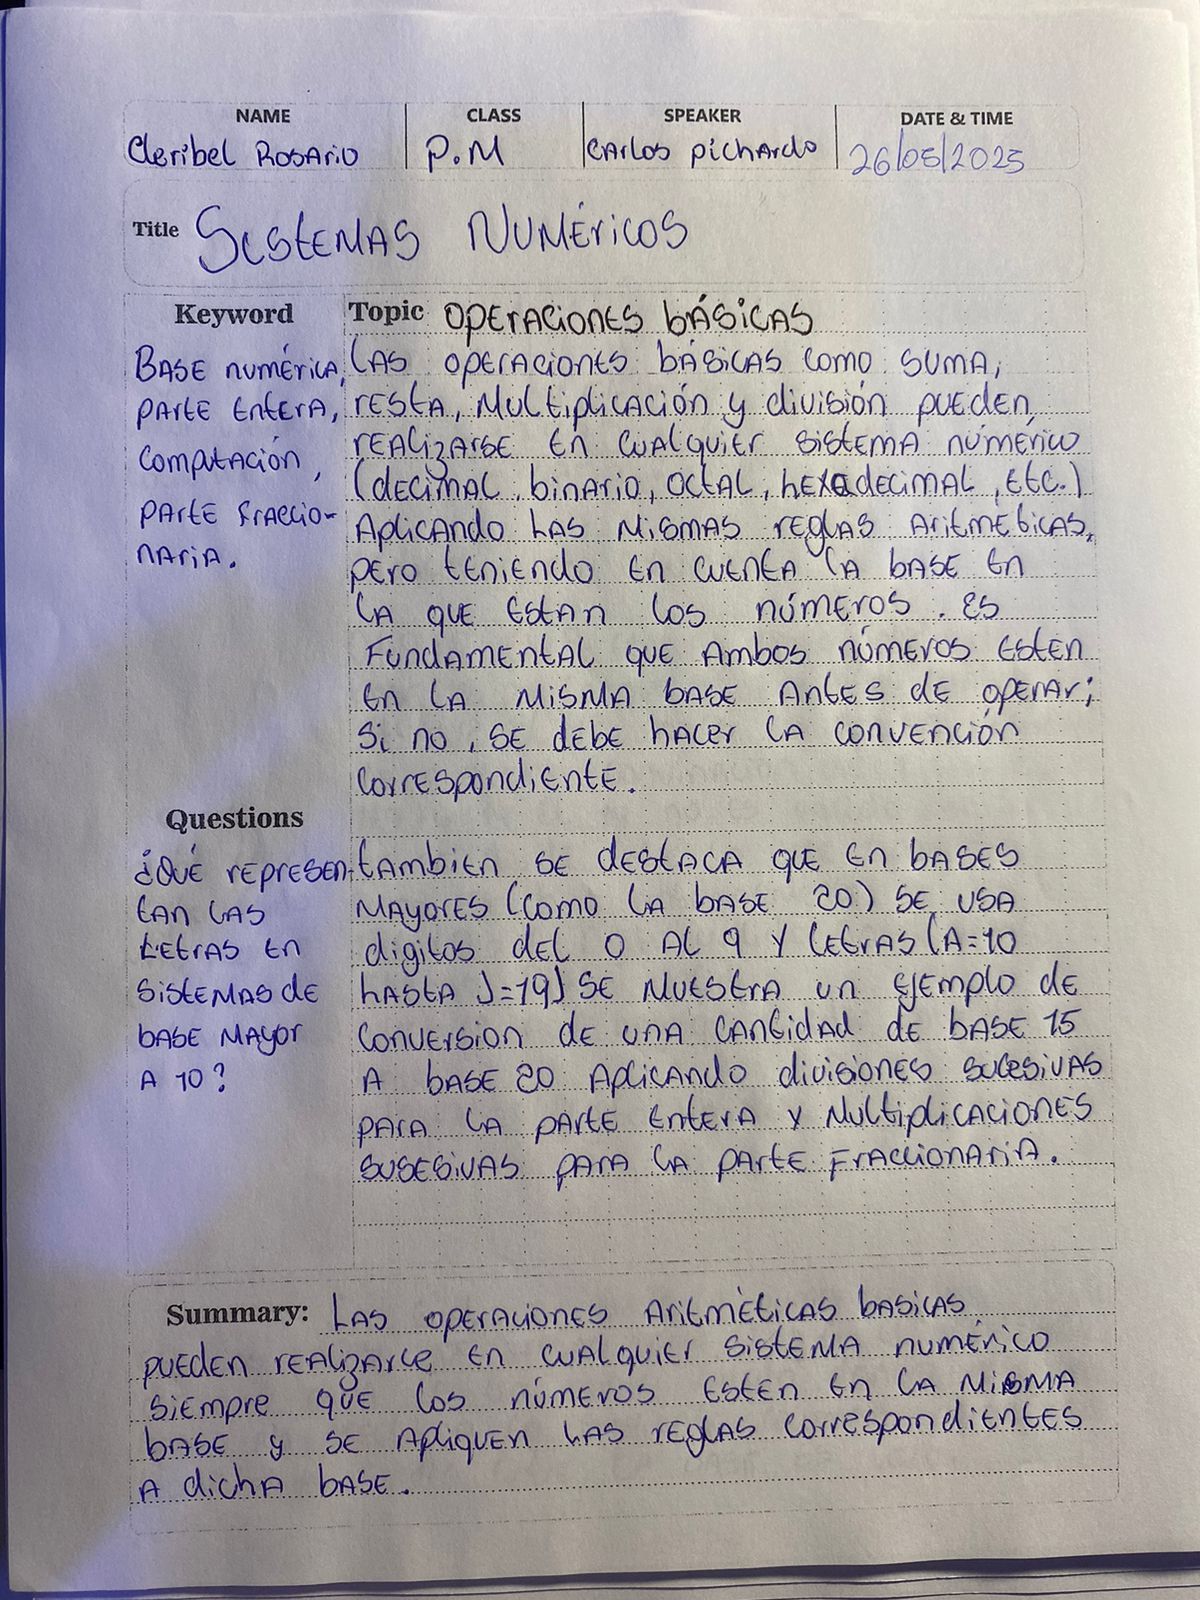 NAME CLASS SPEAKER DATE & TIME
Cleribel Rosario P.M Carlos Pichardo 26/05/2025
Title Sistemas Numéricos
Keyword
Base numérica,
parte entera,
computación,
parte fraccio-
naria.
Topic Operaciones básicas
Las operaciones básicas como suma,
resta, multiplicación y división pueden
realizarse en cualquier sistema numérico
(decimal, binario, octal, hexadecimal, etc.)
Aplicando las mismas reglas aritmeticas,
pero teniendo en cuenta la base en
la que estan los números. es
Fundamental que ambos números esten
en la misma base antes de operar;
si no, se debe hacer la convención
correspondiente.
Questions
¿Qué represen-
tan las
letras en
sistemas de
base mayor
a 10?
tambien se destaca que en bases
mayores (como la base 20) se usa
digitos del 0 al 9 y letras (A=10
hasta J=19) se muestra un ejemplo de
conversion de una cantidad de base 15
a base 20 aplicando divisiones sucesivas
para la parte entera y multiplicaciones
susesivas para la parte fraccionaria.
Summary: Las operaciones aritméticas basicas
pueden realizarce en cualquier sistema numérico
siempre que los números esten en la misma
base y se apliquen las reglas correspondientes
a dicha base.